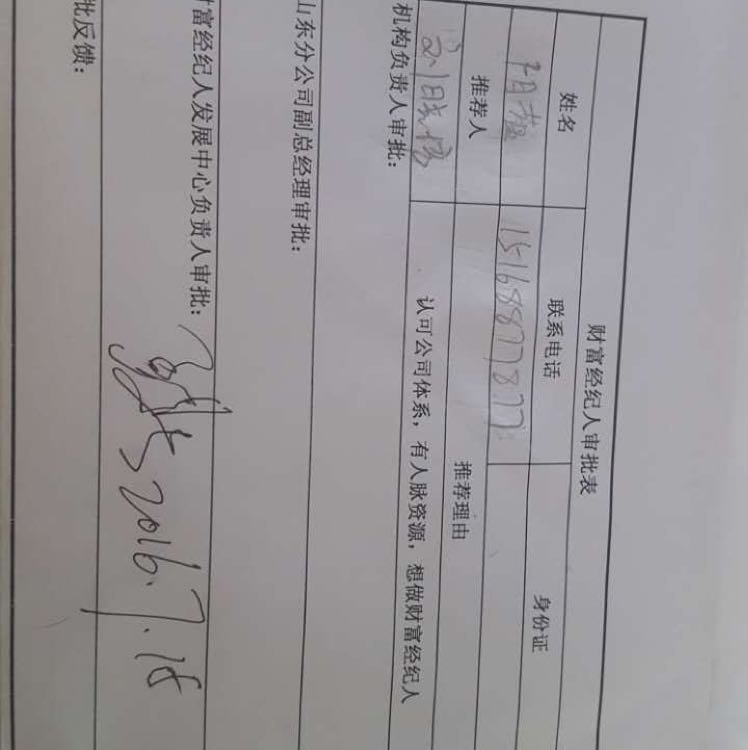 财富经纪人审批表
姓名 联系电话 身份证
15168877877
推荐人 推荐理由
认可公司体系，有人脉资源，想做财富经纪人
机构负责人审批：
山东分公司副总经理审批：
财富经纪人发展中心负责人审批：
2016.7.18
批反馈：